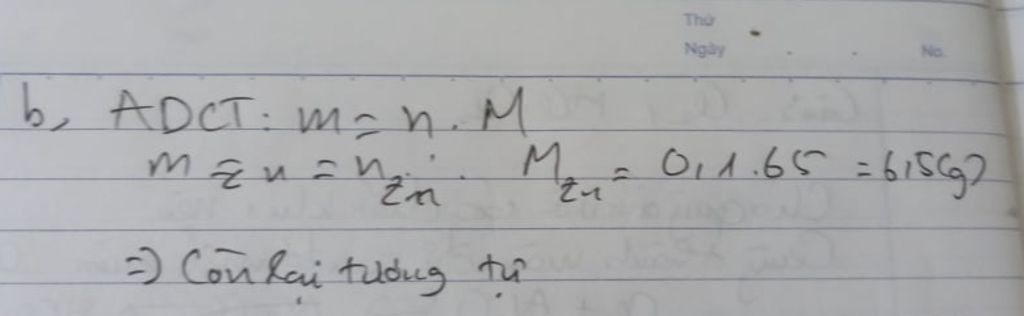 Thứ
Ngày No.
b, ADCT: m = n . M
m Zn = n Zn . M Zn = 0,1.65 = 6,5(g)
=> Còn lại tương tự